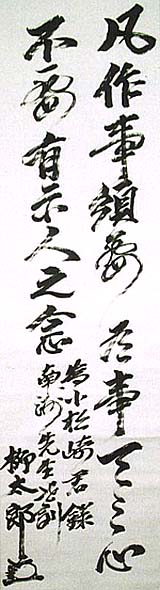 凡作事須要有事天之心
不要有示人之念
為小松崎君録
南洲先生遺訓
柳太郎